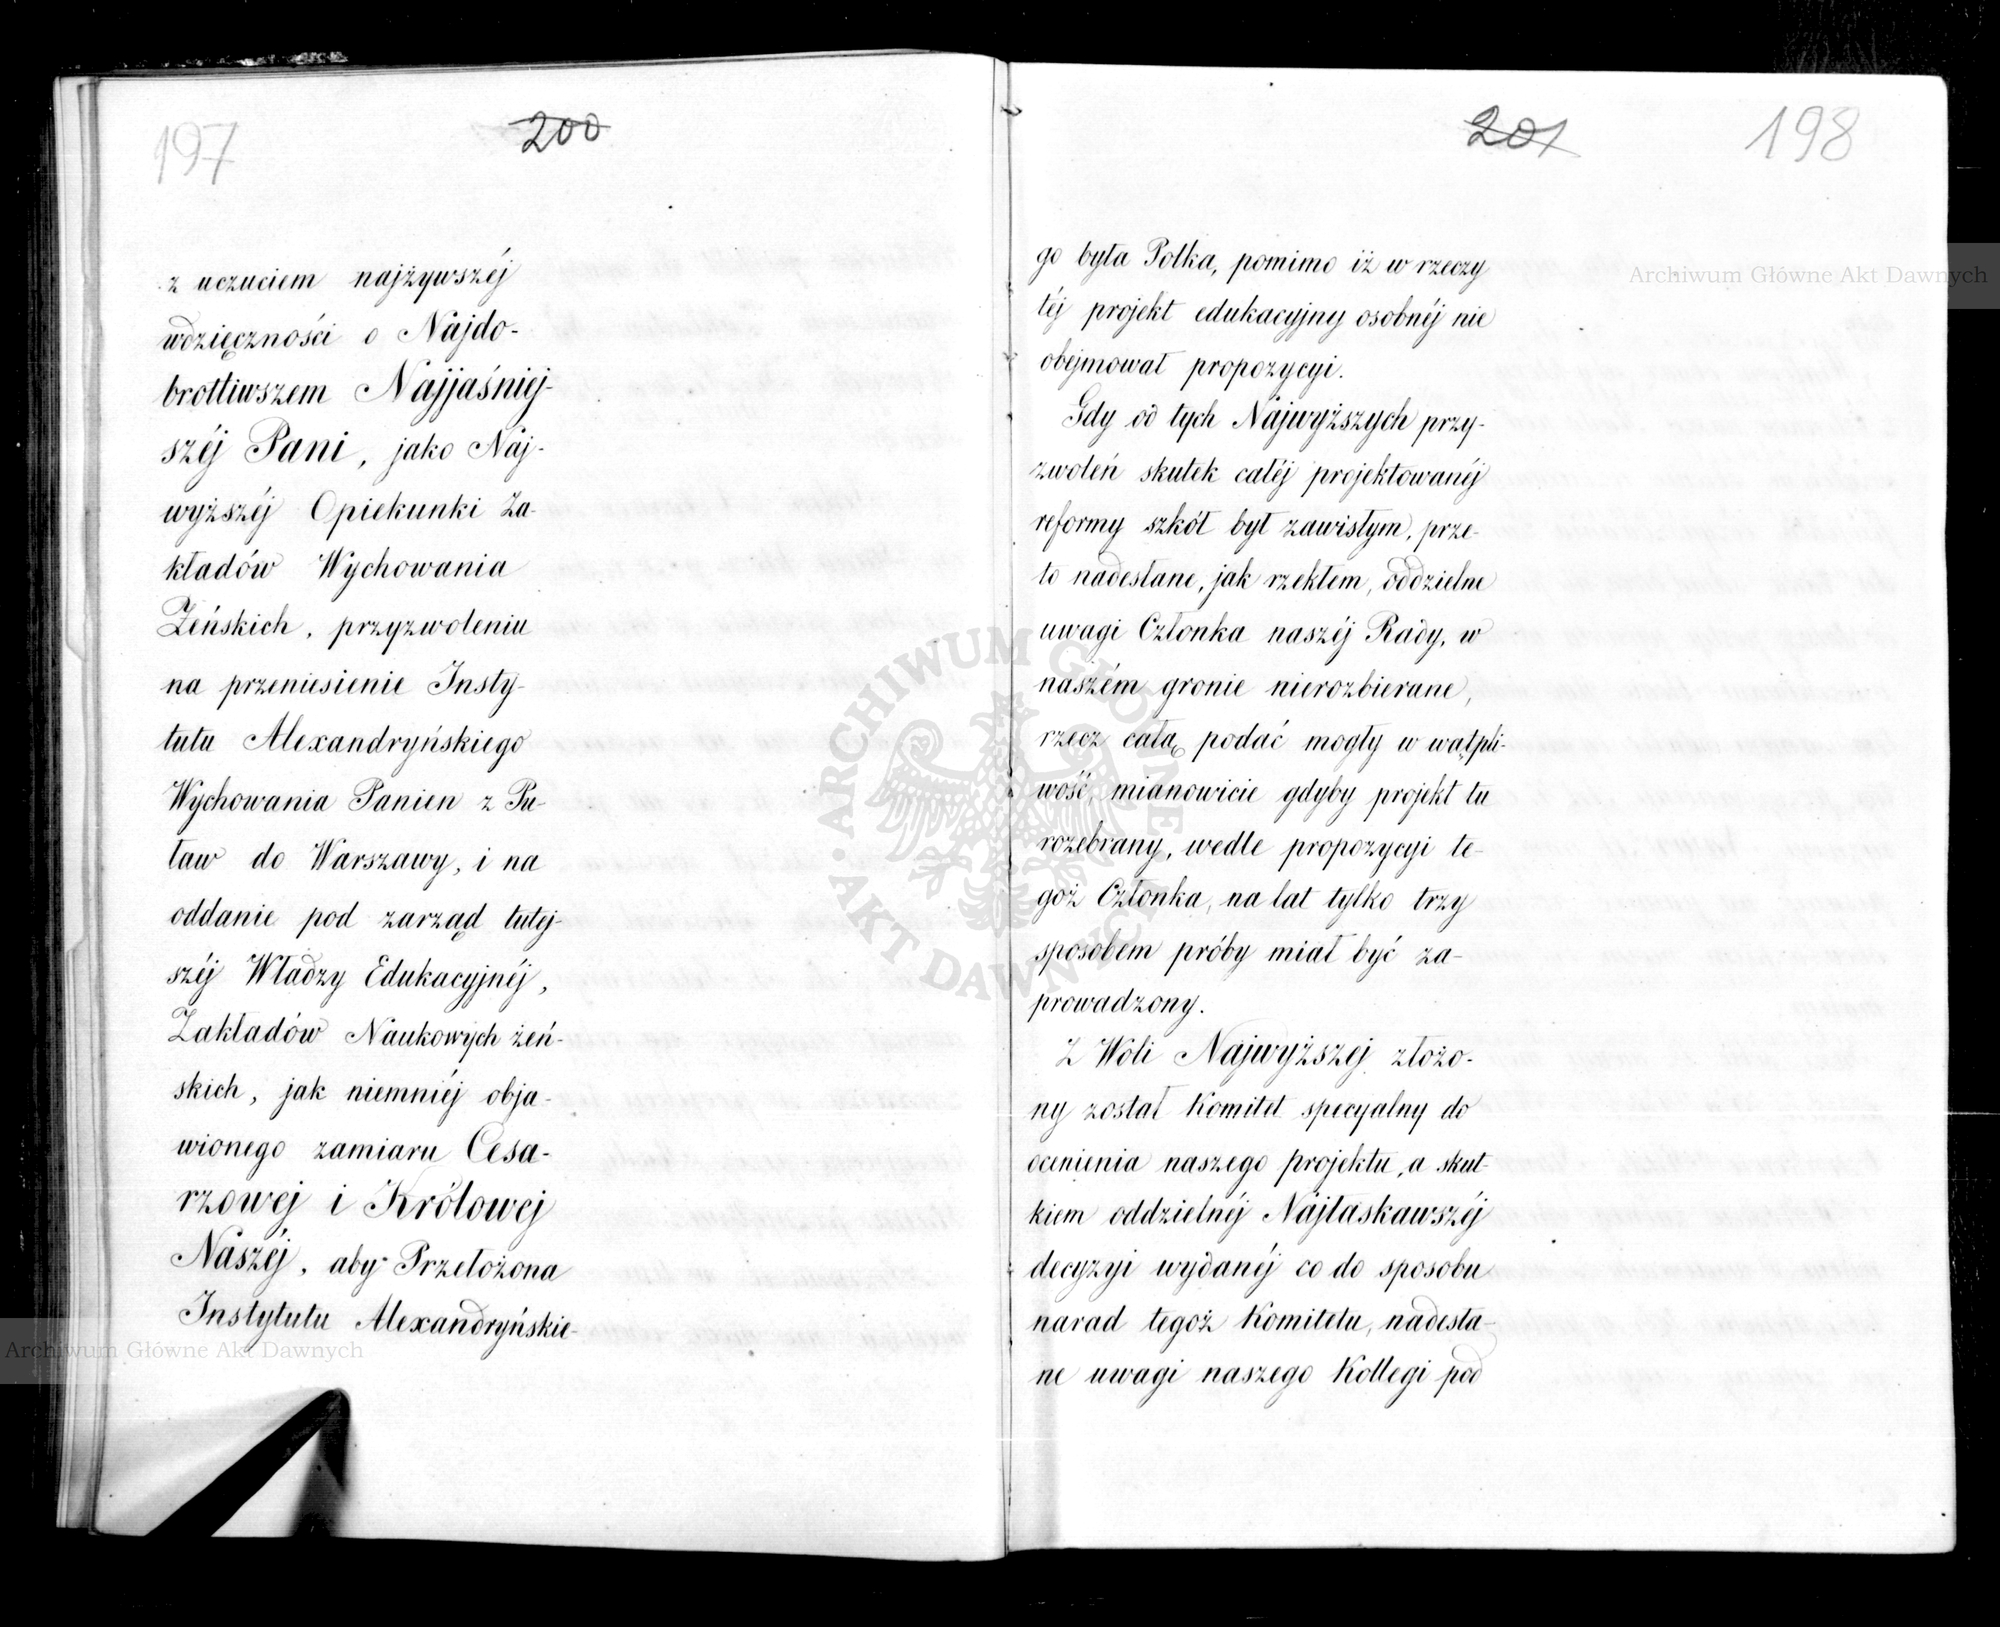 197
200
z uczuciem najżywszéj
wdzięczności o Najdo-
brotliwszem Najjaśniej-
széj Pani, jako Naj-
wyższéj Opiekunki Za-
kładów Wychowania
Żeńskich, przyzwoleniu
na przeniesienie Insty-
tutu Alexandryńskiego
Wychowania Panien z Pu-
ław do Warszawy, i na
oddanie pod zarząd tutej-
széj Władzy Edukacyjnéj,
Zakładów Naukowych żeń-
skich, jak niemniéj obja-
wionego zamiaru Cesa-
rzowej i Królowej
Naszéj, aby Przełożona
Instytutu Alexandryńskie-
201
198
go była Polka, pomimo iż w rzeczy
téj projekt edukacyjny osobnéj nie
obejmował propozycyi.
Gdy od tych Najwyższych przy-
zwoleń skutek całéj projektowanéj
reformy szkół był zawisłym, prze-
to nadesłane, jak rzekłem, oddzielne
uwagi Członka naszéj Rady, w
naszém gronie nierozbierane,
rzecz całą podać mogły w wątpli-
wość, mianowicie gdyby projekt tu
rozebrany, wedle propozycyi te-
goż Członka, na lat tylko trzy
sposobem próby miał być za-
prowadzony.
Z Woli Najwyższej złożo-
ny został Komitet specyalny do
ocenienia naszego projektu, a skut-
kiem oddzielnéj Najłaskawszéj
decyzyi wydanéj co do sposobu
narad tegoż Komitetu, nadesła-
ne uwagi naszego Kollegi pod
Archiwum Główne Akt Dawnych
Archiwum Główne Akt Dawnych
ARCHIWUM GŁÓWNE
AKT DAWNYCH